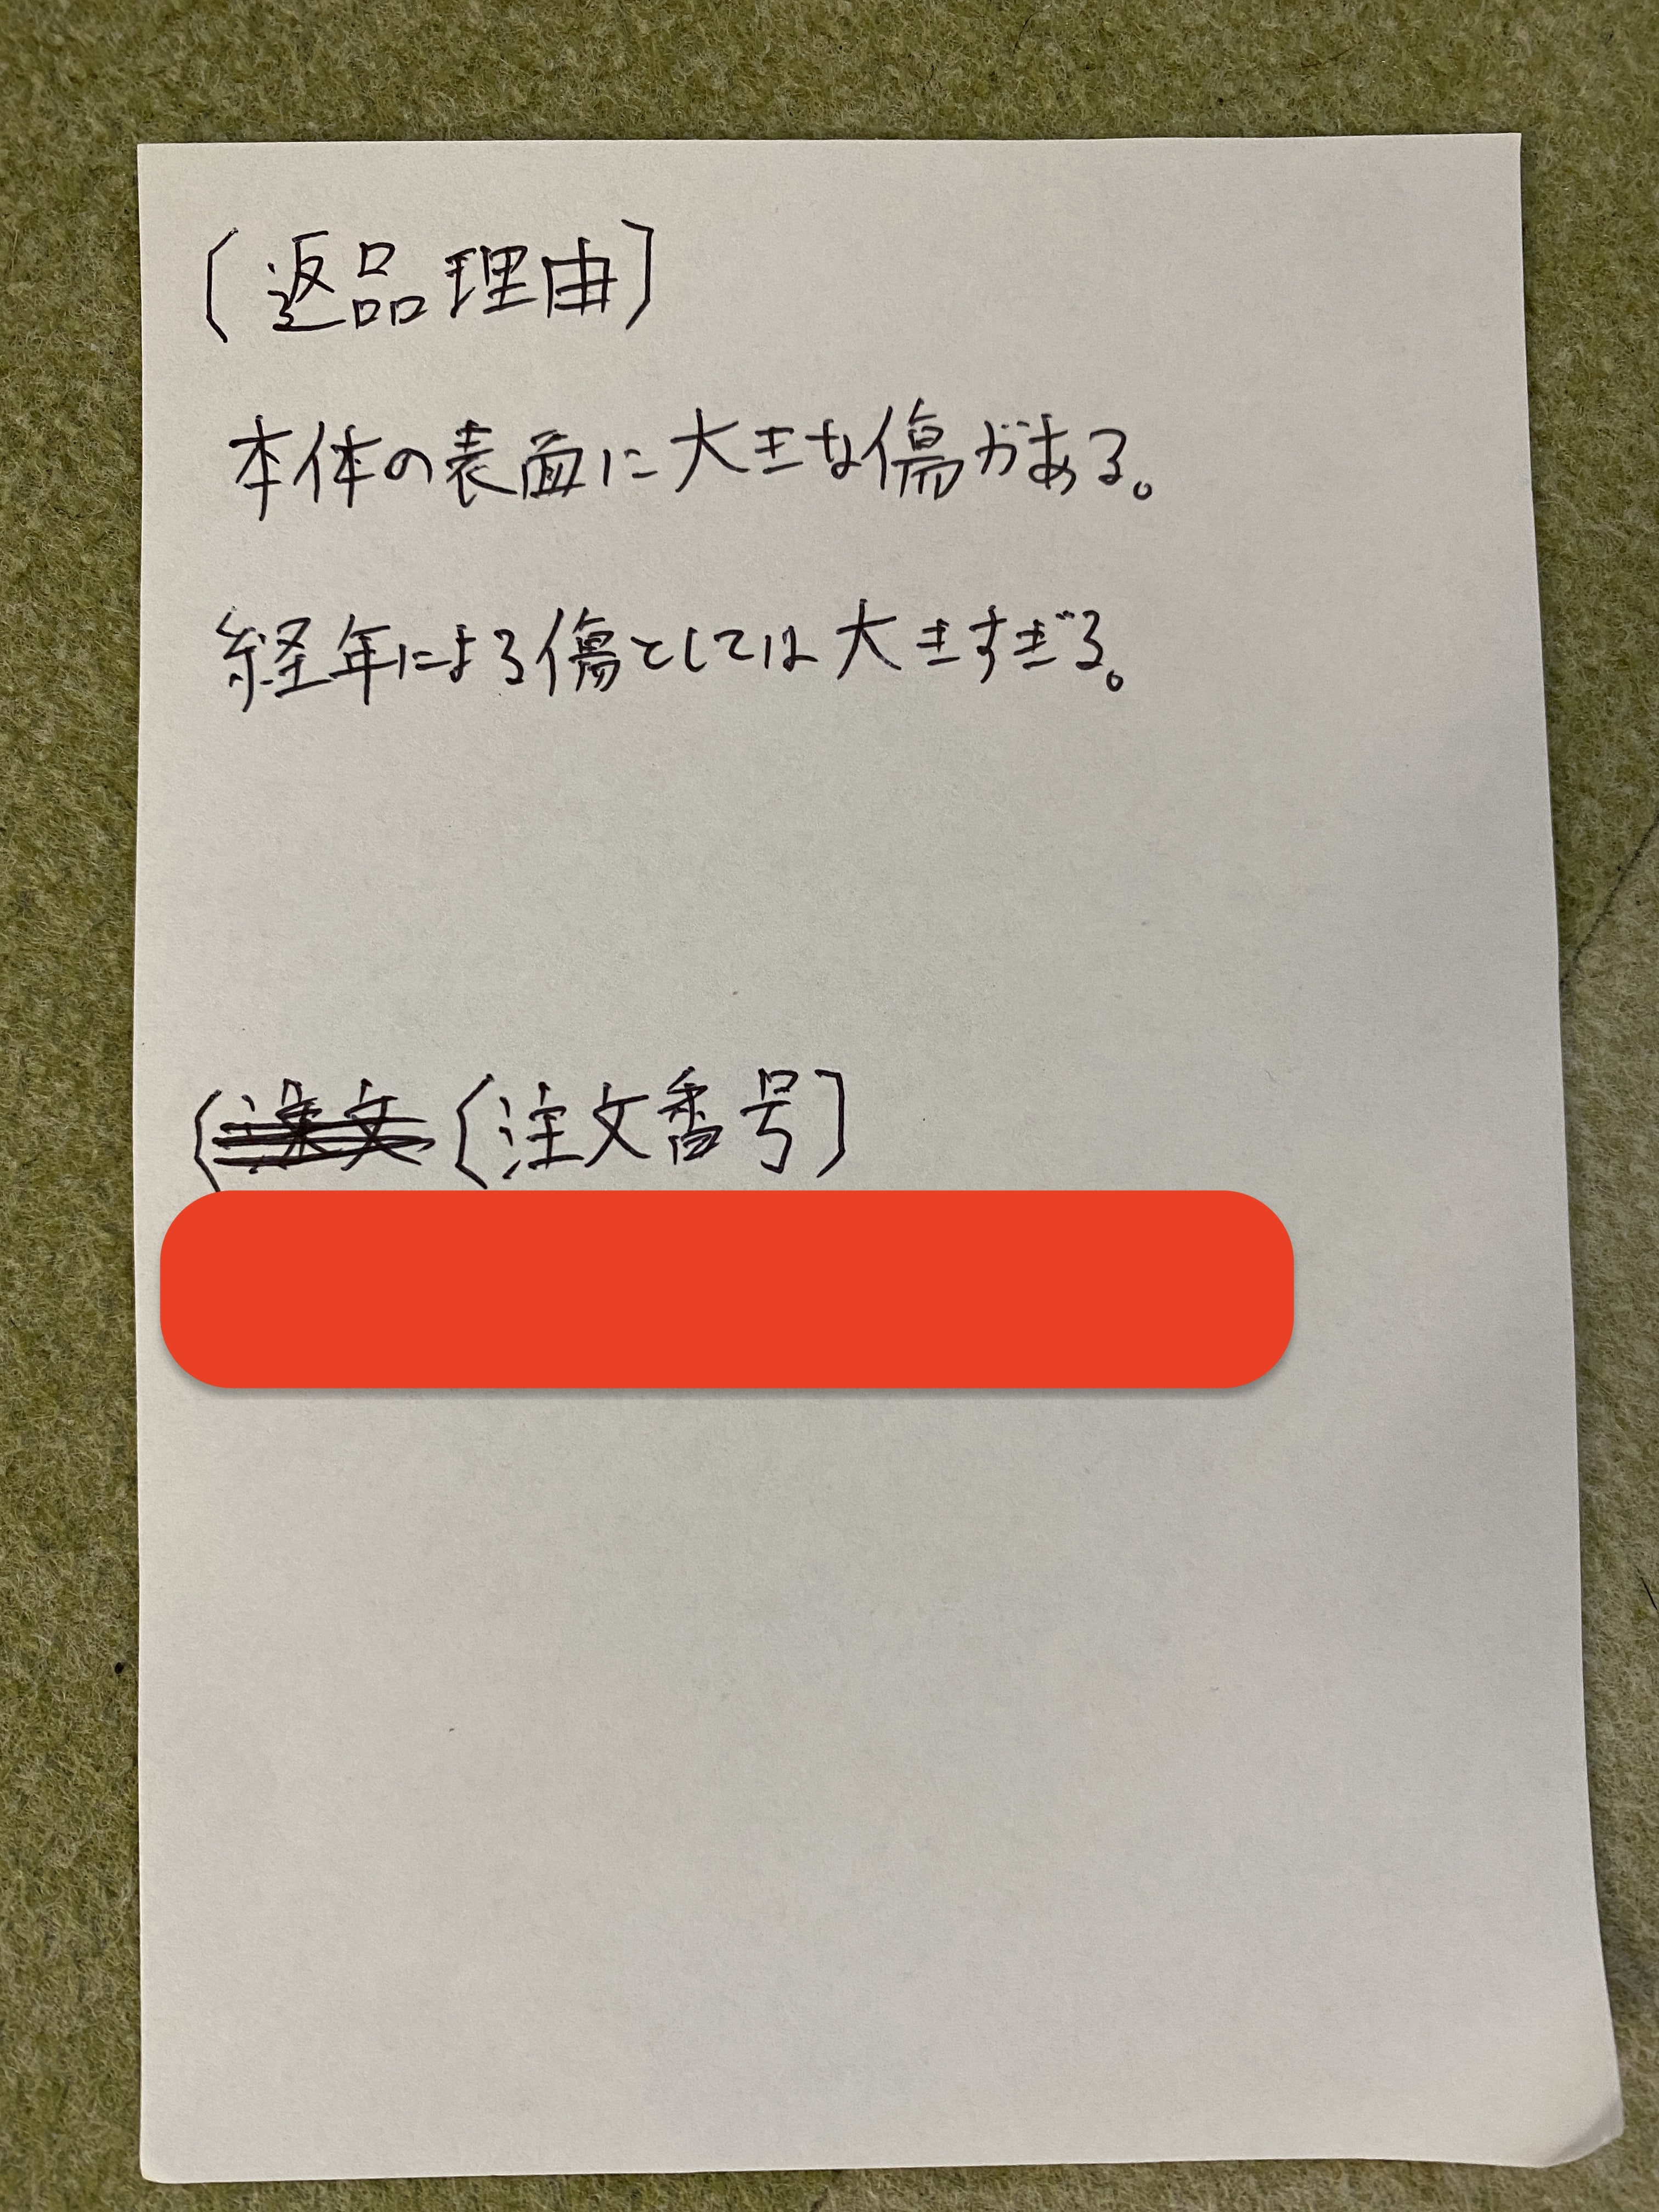 〔返品理由〕
本体の表面に大きな傷がある。
経年による傷としては大きすぎる。
〔注文番号〕